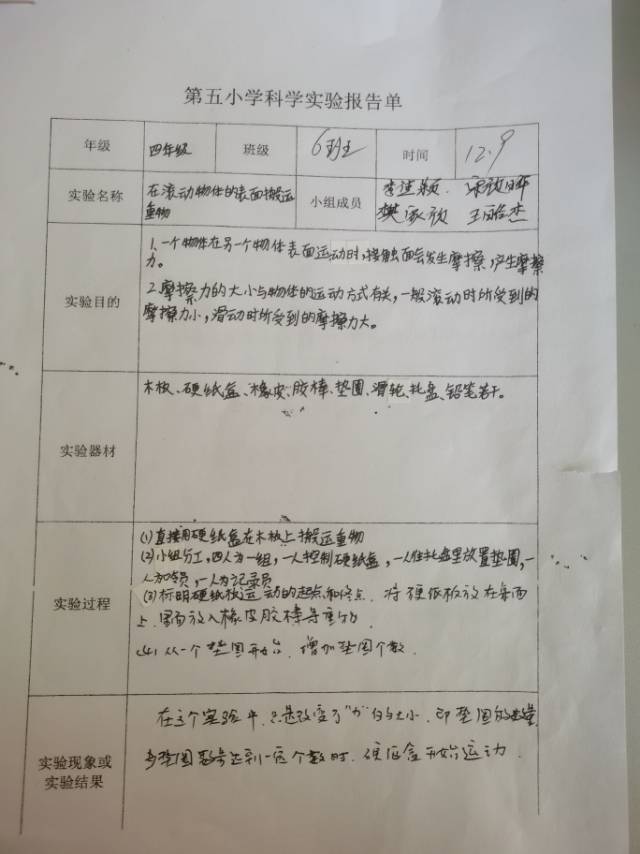 第五小学科学实验报告单
年级 四年级 班级 6班 时间 12.9
实验名称 在滚动物体的表面搬运
重物
小组成员
李建颖
樊家欣 王皓杰
1.一个物体在另一个物体表面运动时,接触面会发生摩擦,产生摩擦
力。
实验目的
2.摩擦力的大小与物体的运动方式有关,一般滚动时所受到的
摩擦力小,滑动时所受到的摩擦力大。
木板、硬纸盒、橡皮、胶棒、垫圈、滑轮、托盘、铅笔若干。
实验器材
(1)直接用硬纸盒在木板上搬运重物
(2)小组分工,四人为一组,一人控制硬纸盒,一人往托盘里放置垫圈,一
人为记录员
实验过程
(3)标明硬纸板运动的起点和终点.将硬纸板放在桌面
上.里面放入橡皮胶棒等重物.
(4)从一个垫圈开始.增加垫圈个数.
在这个实验中.只是改变了"力"的大小.即垫圈的数量,
实验现象或
实验结果
多垫圈数量达到一定个数时.硬纸盒开始运动.